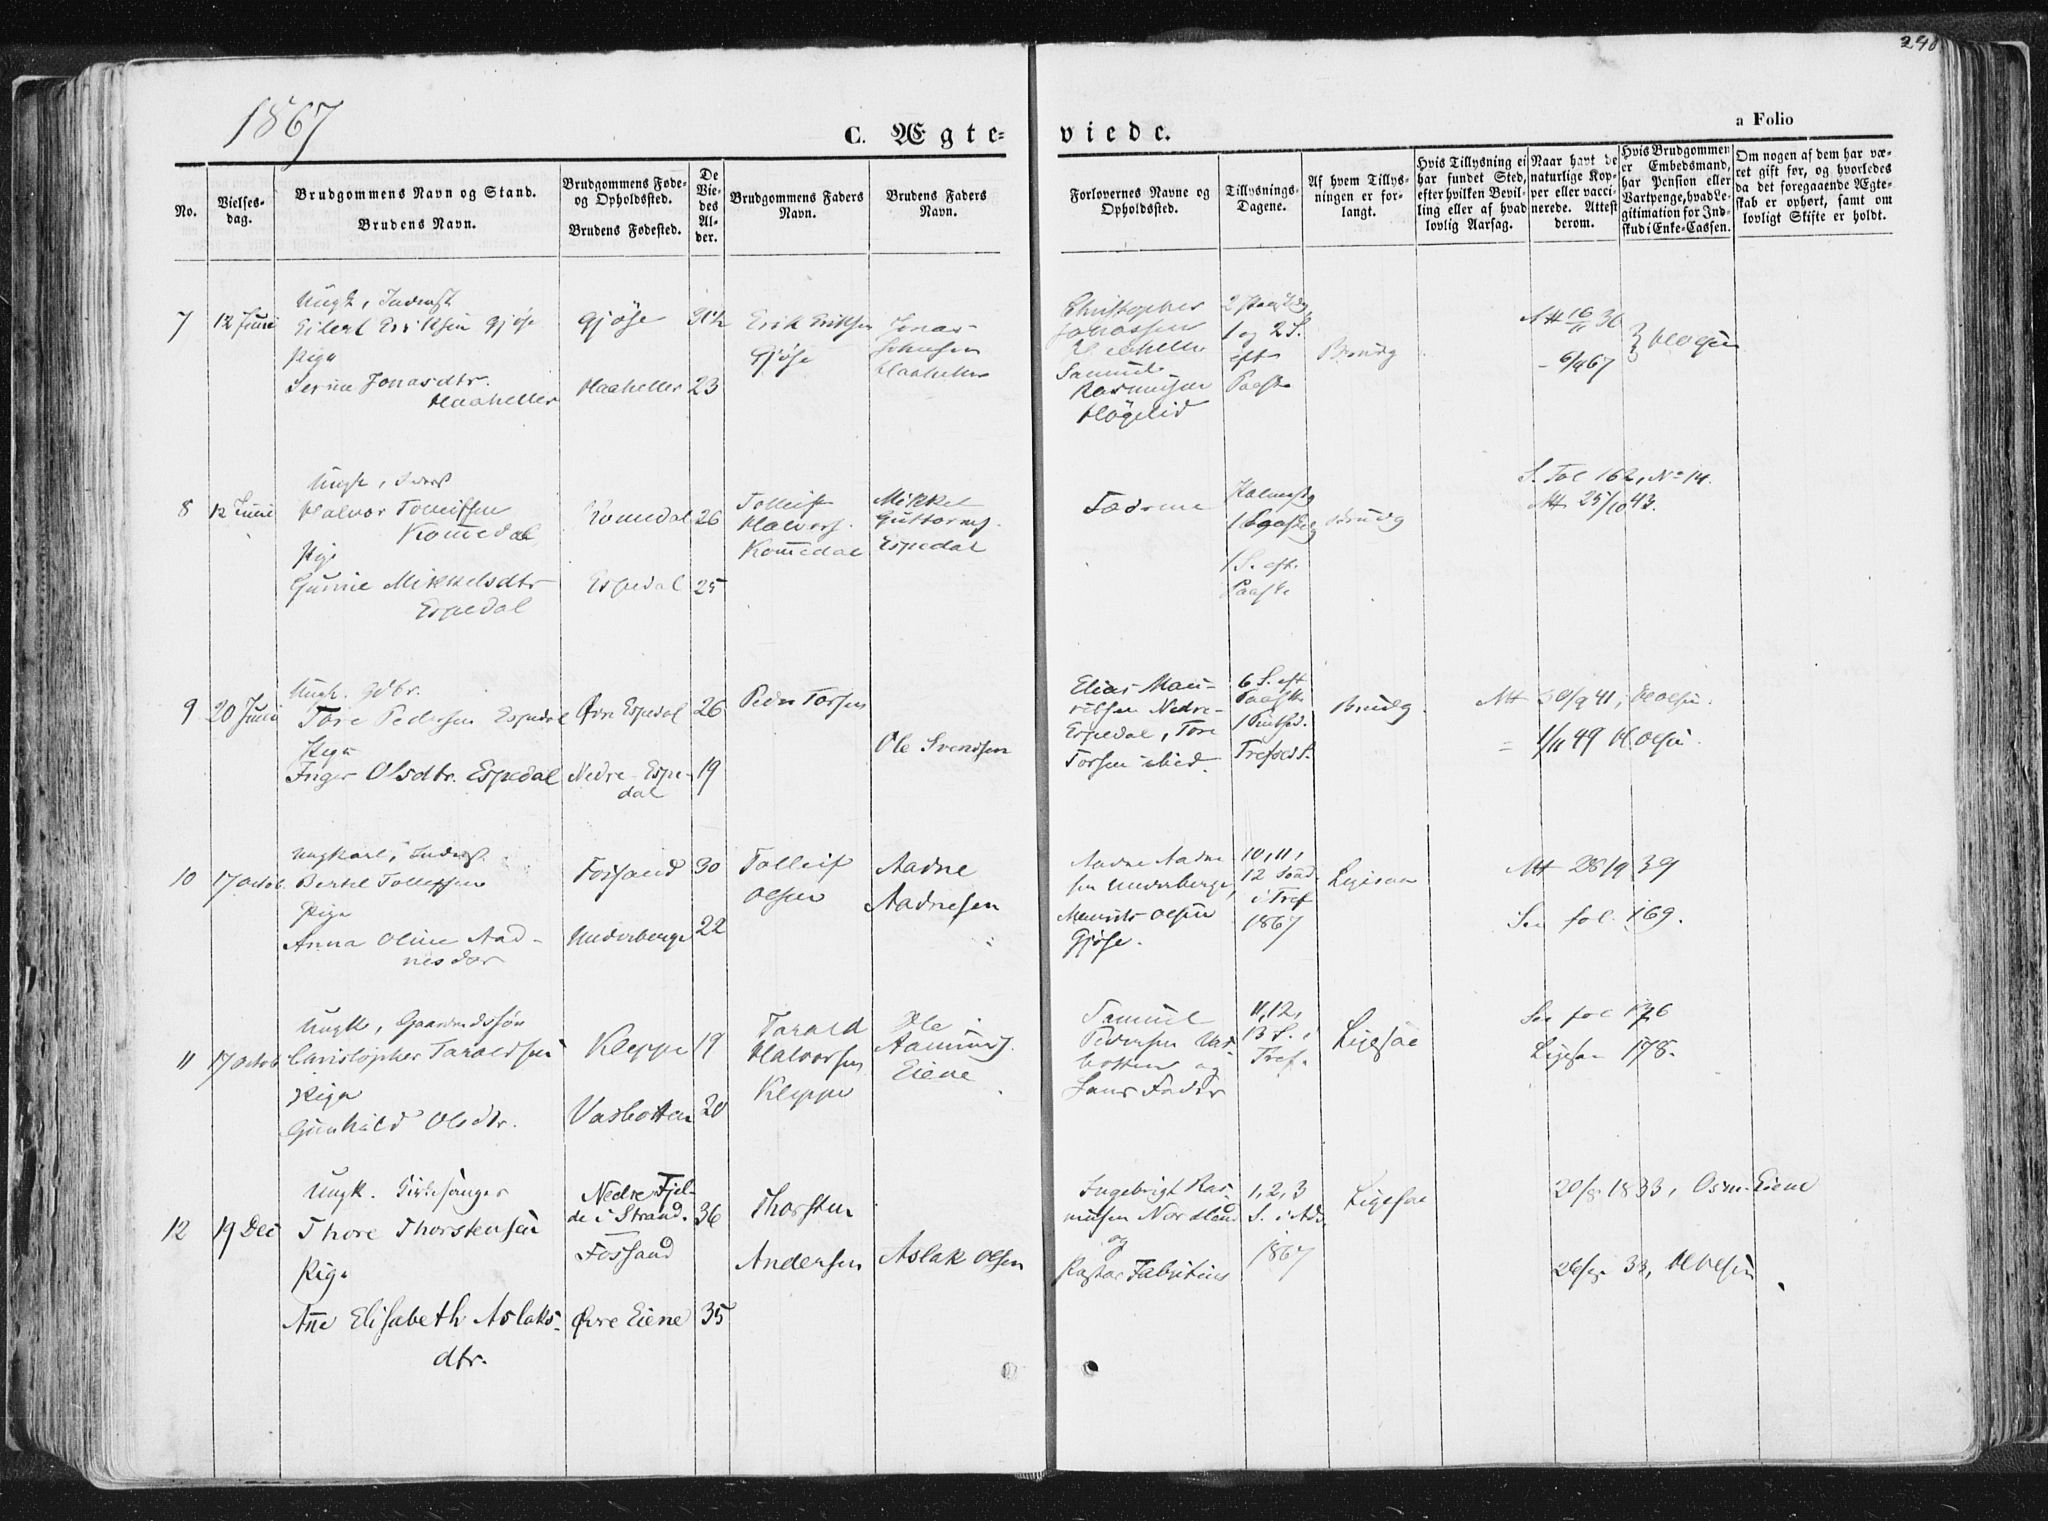 240
1867
C. Ægte=
viede.
a Folio
No.
Vielses-
dag.
Brudgommens Navn og Stand.
Brudens Navn.
Brudgommens Føde-
og Opholdssted.
Brudens Fødested.
De
Vie-
des
Al-
der.
Brudgommens Faders
Navn.
Brudens Faders
Navn.
Forlovernes Navne og
Opholdssted.
Tillysnings-
Dagene.
Af hvem Tillys-
ningen er for-
langt.
Hvis Tillysning ei
har fundet Sted,
efter hvilken Bevil-
ling eller af hvad
lovlig Aarsag.
Naar havt de
naturlige Kop-
per eller vacci-
nerede. Attest
derom.
Hvis Brudgommen
er Embedsmand,
har Pension eller
Vartpenge, hvad Le-
gitimation for Ind-
skud i Enke-Cassen.
Om nogen af dem har væ-
ret gift før, og hvorledes
da det foregaaende Ægte-
skab er ophørt, samt om
lovligt Skifte er holdt.
7
12 Juni
Ungk, Inderst
Eilert Eriksen Gjøse
Pige
Serine Jonasdtr.
Haaheller
Gjøse
Haaheller
23
Erik Eriksen
Gjøse
Jonas
Haaheller
Christopher
Jonassen
Haaheller
Samuel
Rasmusen
Høgelid
1 og 2 S.
eft
Paaske
Brudg
- 6/4 67
8
12 Juni
Ungk, Inderst
Halvor Tolleifsen
Komedal
Pige
Gunne Mikkelsdtr
Espedal
Komedal
26
Espedal
25
Tolleif
Halvors.
Komedal
Mikkel
Guttorms.
Espedal
Fædrene
1 S. eft.
Paaske
Brudg
S. Fol 162, No 14.
Att 25/10 43.
9
20 Juni
Ungk. Gdbr.
Tore Pedersen Espedal
Pige
Inger Olsdtr. Espedal
Øvre Espedal
26
Nedre Espe-
dal
19
Peder Torsen
Ole Svendsen
Elias Mau-
ritsen Nedre-
Espedal, Tore
Torsen ibid.
6 S. eft
Paaske
1 Pintsed.
Trefoed S.
Brudg.
Att 30/9 41, H Olsen.
= 1/11 49 H Olsen.
10
17 Octob.
Ungkarl, Inderst.
Bertel Tolleifsen
Pige
Anna Oline Aad-
nesdtr
Fossand
30
Underberge
22
Tolleif
Olsen
Aadne
Aadnesen
Aadne Aadne
sen Underberge,
Maurits Olsen
Gjøse.
10, 11,
12 Sønd.
i Tref
1867
Ligesaa
Att 28/9 39
See fol. 169.
11
17 Octob
Ungk, Gaardmdssøn
Christopher Taraldsen
Pige
Gunhild Olsdtr.
Kleppe
19
Vasbotten
20
Tarald
Halvorsen
Kleppe
Ole
Aamunds.
Eiene
Samuel
Pedersen Vas-
botten og
Hans Fader
11, 12,
13 S. i
Tref.
Ligesaa
See fol 176
Ligesaa 178.
12
19 Dec
Ungk. Kirkesanger
Thore Thorstensen
Pige
Ane Elisabeth Aslaks-
dtr.
Nedre Fjel-
de i Strand.
Fossand
36
Øvre Eiene
35
Thorsten
Andersen
Aslak Olsen
Ingebrigt Ras-
musen Nordland
og
Pastor Fabritius
1, 2, 3
S. i Adv.
1867
Ligesaa
20/8 1833, Osm. Eiene
33, H Olsen